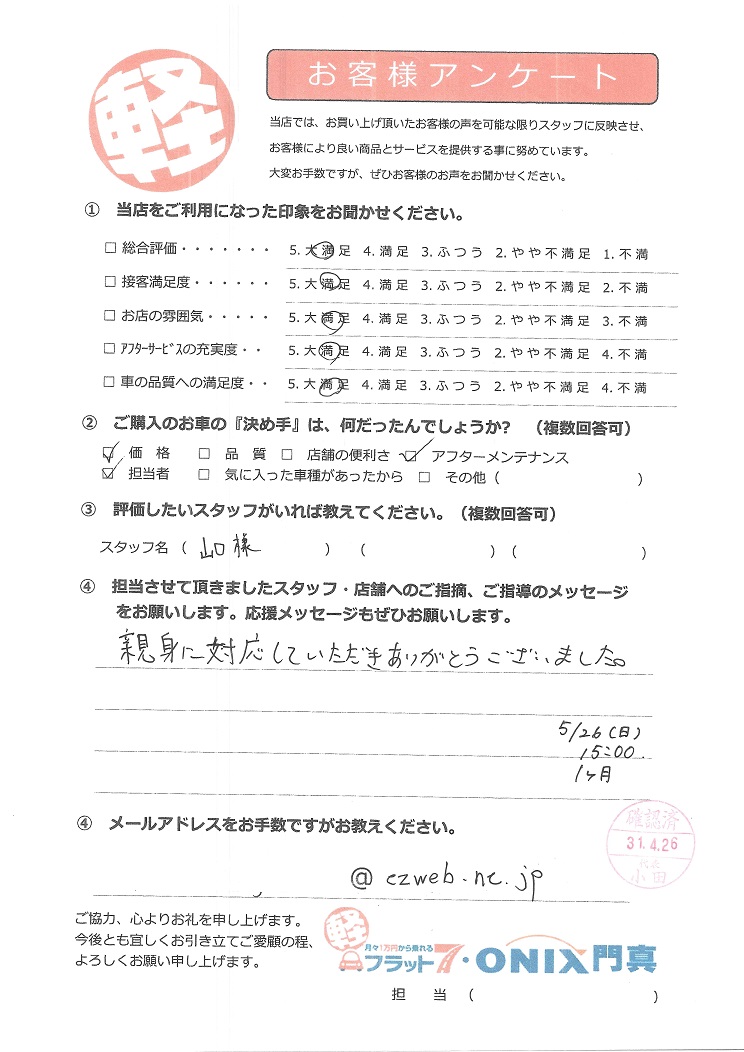 軽
お客様アンケート
当店では、お買い上げ頂いたお客様の声を可能な限りスタッフに反映させ、
お客様により良い商品とサービスを提供する事に努めています。
大変お手数ですが、ぜひお客様のお声をお聞かせください。
① 当店をご利用になった印象をお聞かせください。
□ 総合評価・・・・・・・ 5. 大満足 4. 満足 3. ふつう 2. やや不満足 1. 不満
□ 接客満足度・・・・・・ 5. 大満足 4. 満足 3. ふつう 2. やや不満足 2. 不満
□ お店の雰囲気・・・・・ 5. 大満足 4. 満足 3. ふつう 2. やや不満足 3. 不満
□ ｱﾌﾀｰｻｰﾋﾞｽの充実度・・ 5. 大満足 4. 満足 3. ふつう 2. やや不満足 4. 不満
□ 車の品質への満足度・・ 5. 大満足 4. 満足 3. ふつう 2. やや不満足 4. 不満
② ご購入のお車の『決め手』は、何だったんでしょうか? （複数回答可）
☑ 価 格 □ 品 質 □ 店舗の便利さ ☑ アフターメンテナンス
☑ 担当者 □ 気に入った車種があったから □ その他（ ）
③ 評価したいスタッフがいれば教えてください。（複数回答可）
スタッフ名（ 山口様 ）（ ）（ ）
④ 担当させて頂きましたスタッフ・店舗へのご指摘、ご指導のメッセージ
をお願いします。応援メッセージもぜひお願いします。
親身に対応していただきありがとうございました。
5/26（日）
15:00.
1ヶ月
④ メールアドレスをお手数ですがお教えください。
確認済
31.4.26
小田
@ezweb.ne.jp
ご協力、心よりお礼を申し上げます。
今後とも宜しくお引き立てご愛顧の程、
よろしくお願い申し上げます。
軽
月々1万円から乗れる
フラット7・ONIX門真
担 当 （ ）